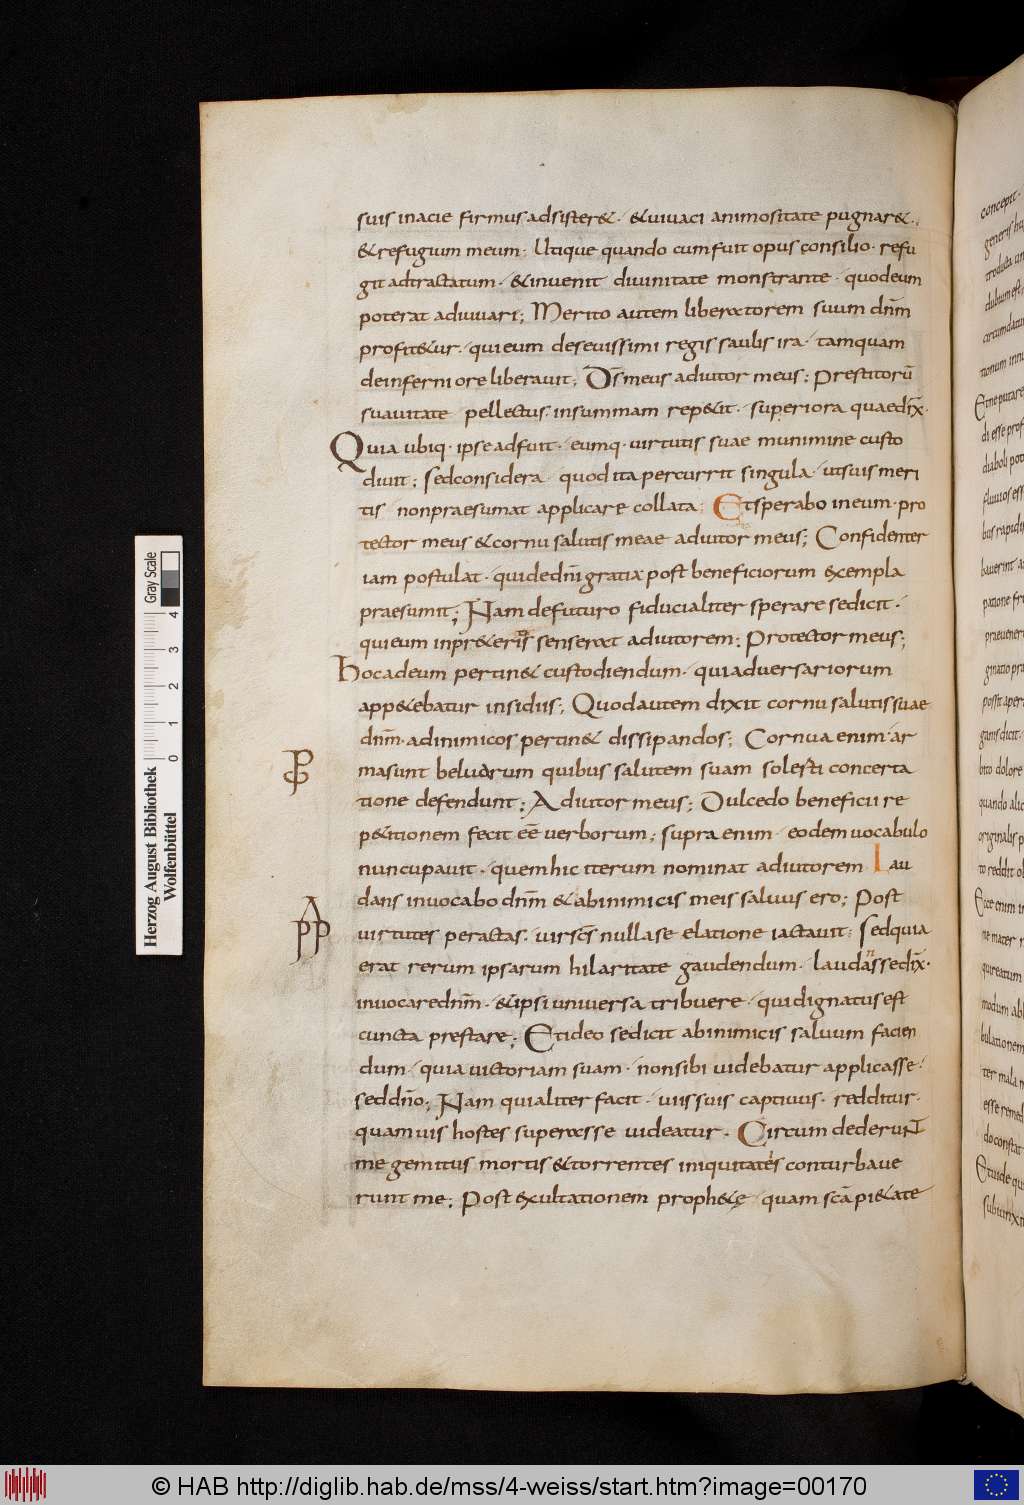 suis inacie firmus adsister&· &uiuaci animositate pugnar&·,
&refugium meum· Utique quando cumfuit opus consilio· refu
git adtractatum· &inuenit diuinitate monstrante· quodeum
poterat adiuuari; Merito autem liberatorem suum dn̄m
profit&ur· quieum deseuissimi regis saulis ira· tamquam
deinferniore liberauit; D̄s meus adiutor meus; Prestitorū
suauitate pellectus· insummam rep&it· superiora quaedix̄·
Quia ubiq· ipse adfuit· eumq· uirtutis suae munimine custo
diuit; sedconsidera· quod ita percurrit singula· utsuis meri
tis nonpraesumat applicare collata; Etsperabo ineum· pro
tector meus &cornu salutis meae adiutor meus; Confidenter
iam postulat· quidedn̄i gratia post beneficiorum exempla
praesumit; Nam defuturo fiducialiter sperare sedicit·
quieum senserat adiutorem; Protector meus;
hoc adeum pertin& custodiendum· quiaduersariorum
app&ebatur insidiis; Quodautem dixit cornu salutis suae
dn̄m· adinimicos pertin& dissipandos; Cornua enim ar
masunt beluarum quibus salutem suam solesti concerta
tione defendunt; Adiutor meus; Dulcedo beneficii re
p&itionem fecit eē uerborum; supra enim· eodem uocabulo
nuncupauit· quemhic iterum nominat adiutorem Lau
dans inuocabo dn̄m &abinimicis meis saluus ero; Post
uirtutes peractas· uirsc̄s nulla se elatione iactauit; Sedquia
erat rerum ipsarum hilaritate gaudendum· laudans sedix̄·
inuocaredn̄m· &ipsi uniuersa tribuere· quidignatus est
cuncta prestare; Etideo sedicit abinimicis saluum facien
dum· quia uictoriam suam· nonsibi uidebatur applicasse·
seddn̄o; Nam quialiter facit· uiissuis captiuus· redditur·
quamuis hostes superasse uideatur· Circum dederunt
me gemitus mortis &torrentes iniquitatis conturbaue
runt me; Post exultationem proph&ę· quam scā pi&ate
Herzog August Bibliothek
Wolfenbüttel
0 1 2 3 4
Gray Scale
© HAB http://diglib.hab.de/mss/4-weiss/start.htm?image=00170